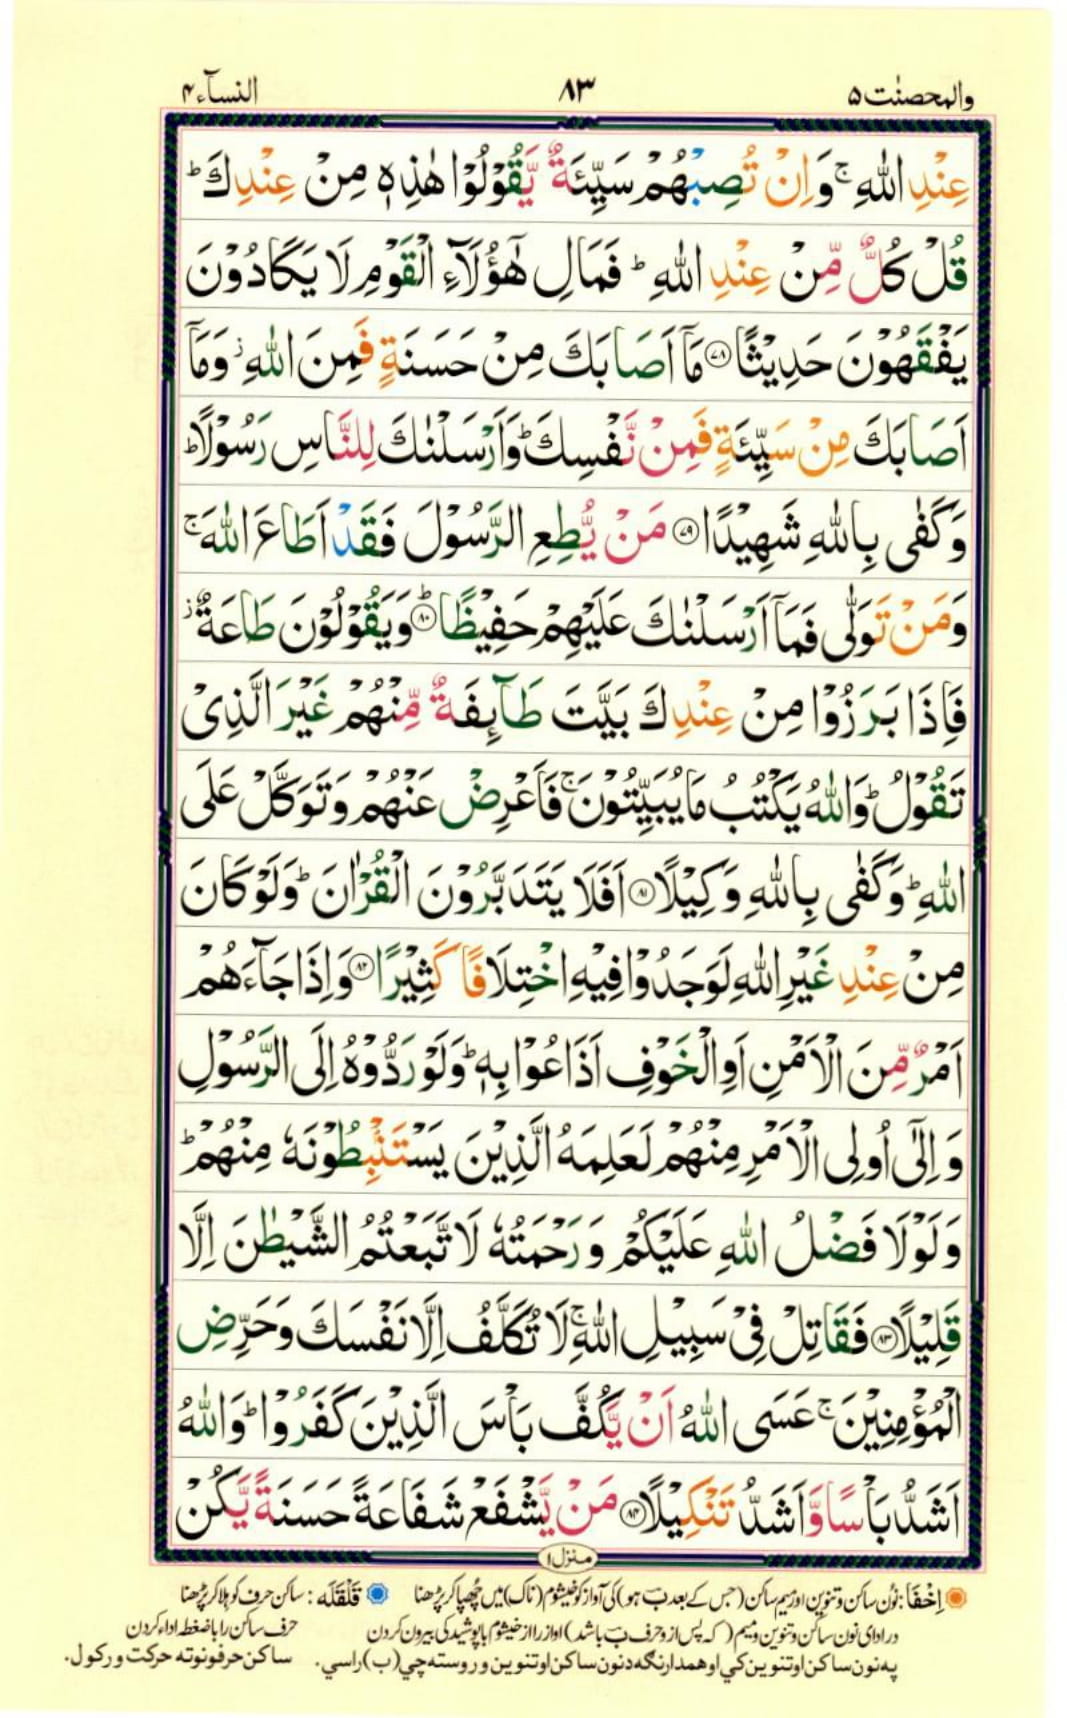 والمحصنٰت ۵
۸۳
النسآء ۴
عِنْدِ اللّٰهِ ۚ وَاِنْ تُصِبْهُمْ سَيِّئَةٌ يَّقُوْلُوْا هٰذِهٖ مِنْ عِنْدِكَ ؕ
قُلْ كُلٌّ مِّنْ عِنْدِ اللّٰهِ ؕ فَمَالِ هٰٓؤُلَآءِ الْقَوْمِ لَا يَكَادُوْنَ
يَفْقَهُوْنَ حَدِيْثًا ۝۷۸ مَاۤ اَصَابَكَ مِنْ حَسَنَةٍ فَمِنَ اللّٰهِ ؗ وَمَاۤ
اَصَابَكَ مِنْ سَيِّئَةٍ فَمِنْ نَّفْسِكَ ؕ وَاَرْسَلْنٰكَ لِلنَّاسِ رَسُوْلًا ؕ
وَكَفٰى بِاللّٰهِ شَهِيْدًا ۝۷۹ مَنْ يُّطِعِ الرَّسُوْلَ فَقَدْ اَطَاعَ اللّٰهَ ۚ
وَمَنْ تَوَلّٰى فَمَاۤ اَرْسَلْنٰكَ عَلَيْهِمْ حَفِيْظًا ؕ۝۸۰ وَيَقُوْلُوْنَ طَاعَةٌ ؗ
فَاِذَا بَرَزُوْا مِنْ عِنْدِكَ بَيَّتَ طَآئِفَةٌ مِّنْهُمْ غَيْرَ الَّذِىْ
تَقُوْلُ ؕ وَاللّٰهُ يَكْتُبُ مَا يُبَيِّتُوْنَ ۚ فَاَعْرِضْ عَنْهُمْ وَتَوَكَّلْ عَلَى
اللّٰهِ ؕ وَكَفٰى بِاللّٰهِ وَكِيْلًا ۝۸۱ اَفَلَا يَتَدَبَّرُوْنَ الْقُرْاٰنَ ؕ وَلَوْ كَانَ
مِنْ عِنْدِ غَيْرِ اللّٰهِ لَوَجَدُوْا فِيْهِ اخْتِلَافًا كَثِيْرًا ۝۸۲ وَاِذَا جَآءَهُمْ
اَمْرٌ مِّنَ الْاَمْنِ اَوِ الْخَوْفِ اَذَاعُوْا بِهٖ ؕ وَلَوْ رَدُّوْهُ اِلَى الرَّسُوْلِ
وَاِلٰٓى اُولِى الْاَمْرِ مِنْهُمْ لَعَلِمَهُ الَّذِيْنَ يَسْتَنْۢبِطُوْنَهٗ مِنْهُمْ ؕ
وَلَوْلَا فَضْلُ اللّٰهِ عَلَيْكُمْ وَرَحْمَتُهٗ لَاتَّبَعْتُمُ الشَّيْطٰنَ اِلَّا
قَلِيْلًا ۝۸۳ فَقَاتِلْ فِىْ سَبِيْلِ اللّٰهِ ۚ لَا تُكَلَّفُ اِلَّا نَفْسَكَ وَحَرِّضِ
الْمُؤْمِنِيْنَ ۚ عَسَى اللّٰهُ اَنْ يَّكُفَّ بَاْسَ الَّذِيْنَ كَفَرُوْا ؕ وَاللّٰهُ
اَشَدُّ بَاْسًا وَّاَشَدُّ تَنْكِيْلًا ۝۸۴ مَنْ يَّشْفَعْ شَفَاعَةً حَسَنَةً يَّكُنْ
منزل ۱
اِخْفَا : نُون ساکن و تنوین اور میم ساکن (جس کے بعد ب ہو) کی آواز کو خیشوم (ناک) میں چُھپا کر پڑھنا قَلْقَلَہ : ساکن حرف کو ہلا کر پڑھنا
در ادای نون ساکن و تنوین و میم (که پس از و حرف ب باشد) آواز را از خیشوم با پوشیدگی بیرون کردن حرف ساکن را با ضغطه ادا، کردن
په نون ساکن او تنوین کي او همدارنگه د نون ساکن او تنوین وروسته چي (ب) راسي. ساکن حرفونو ته حرکت ورکول.